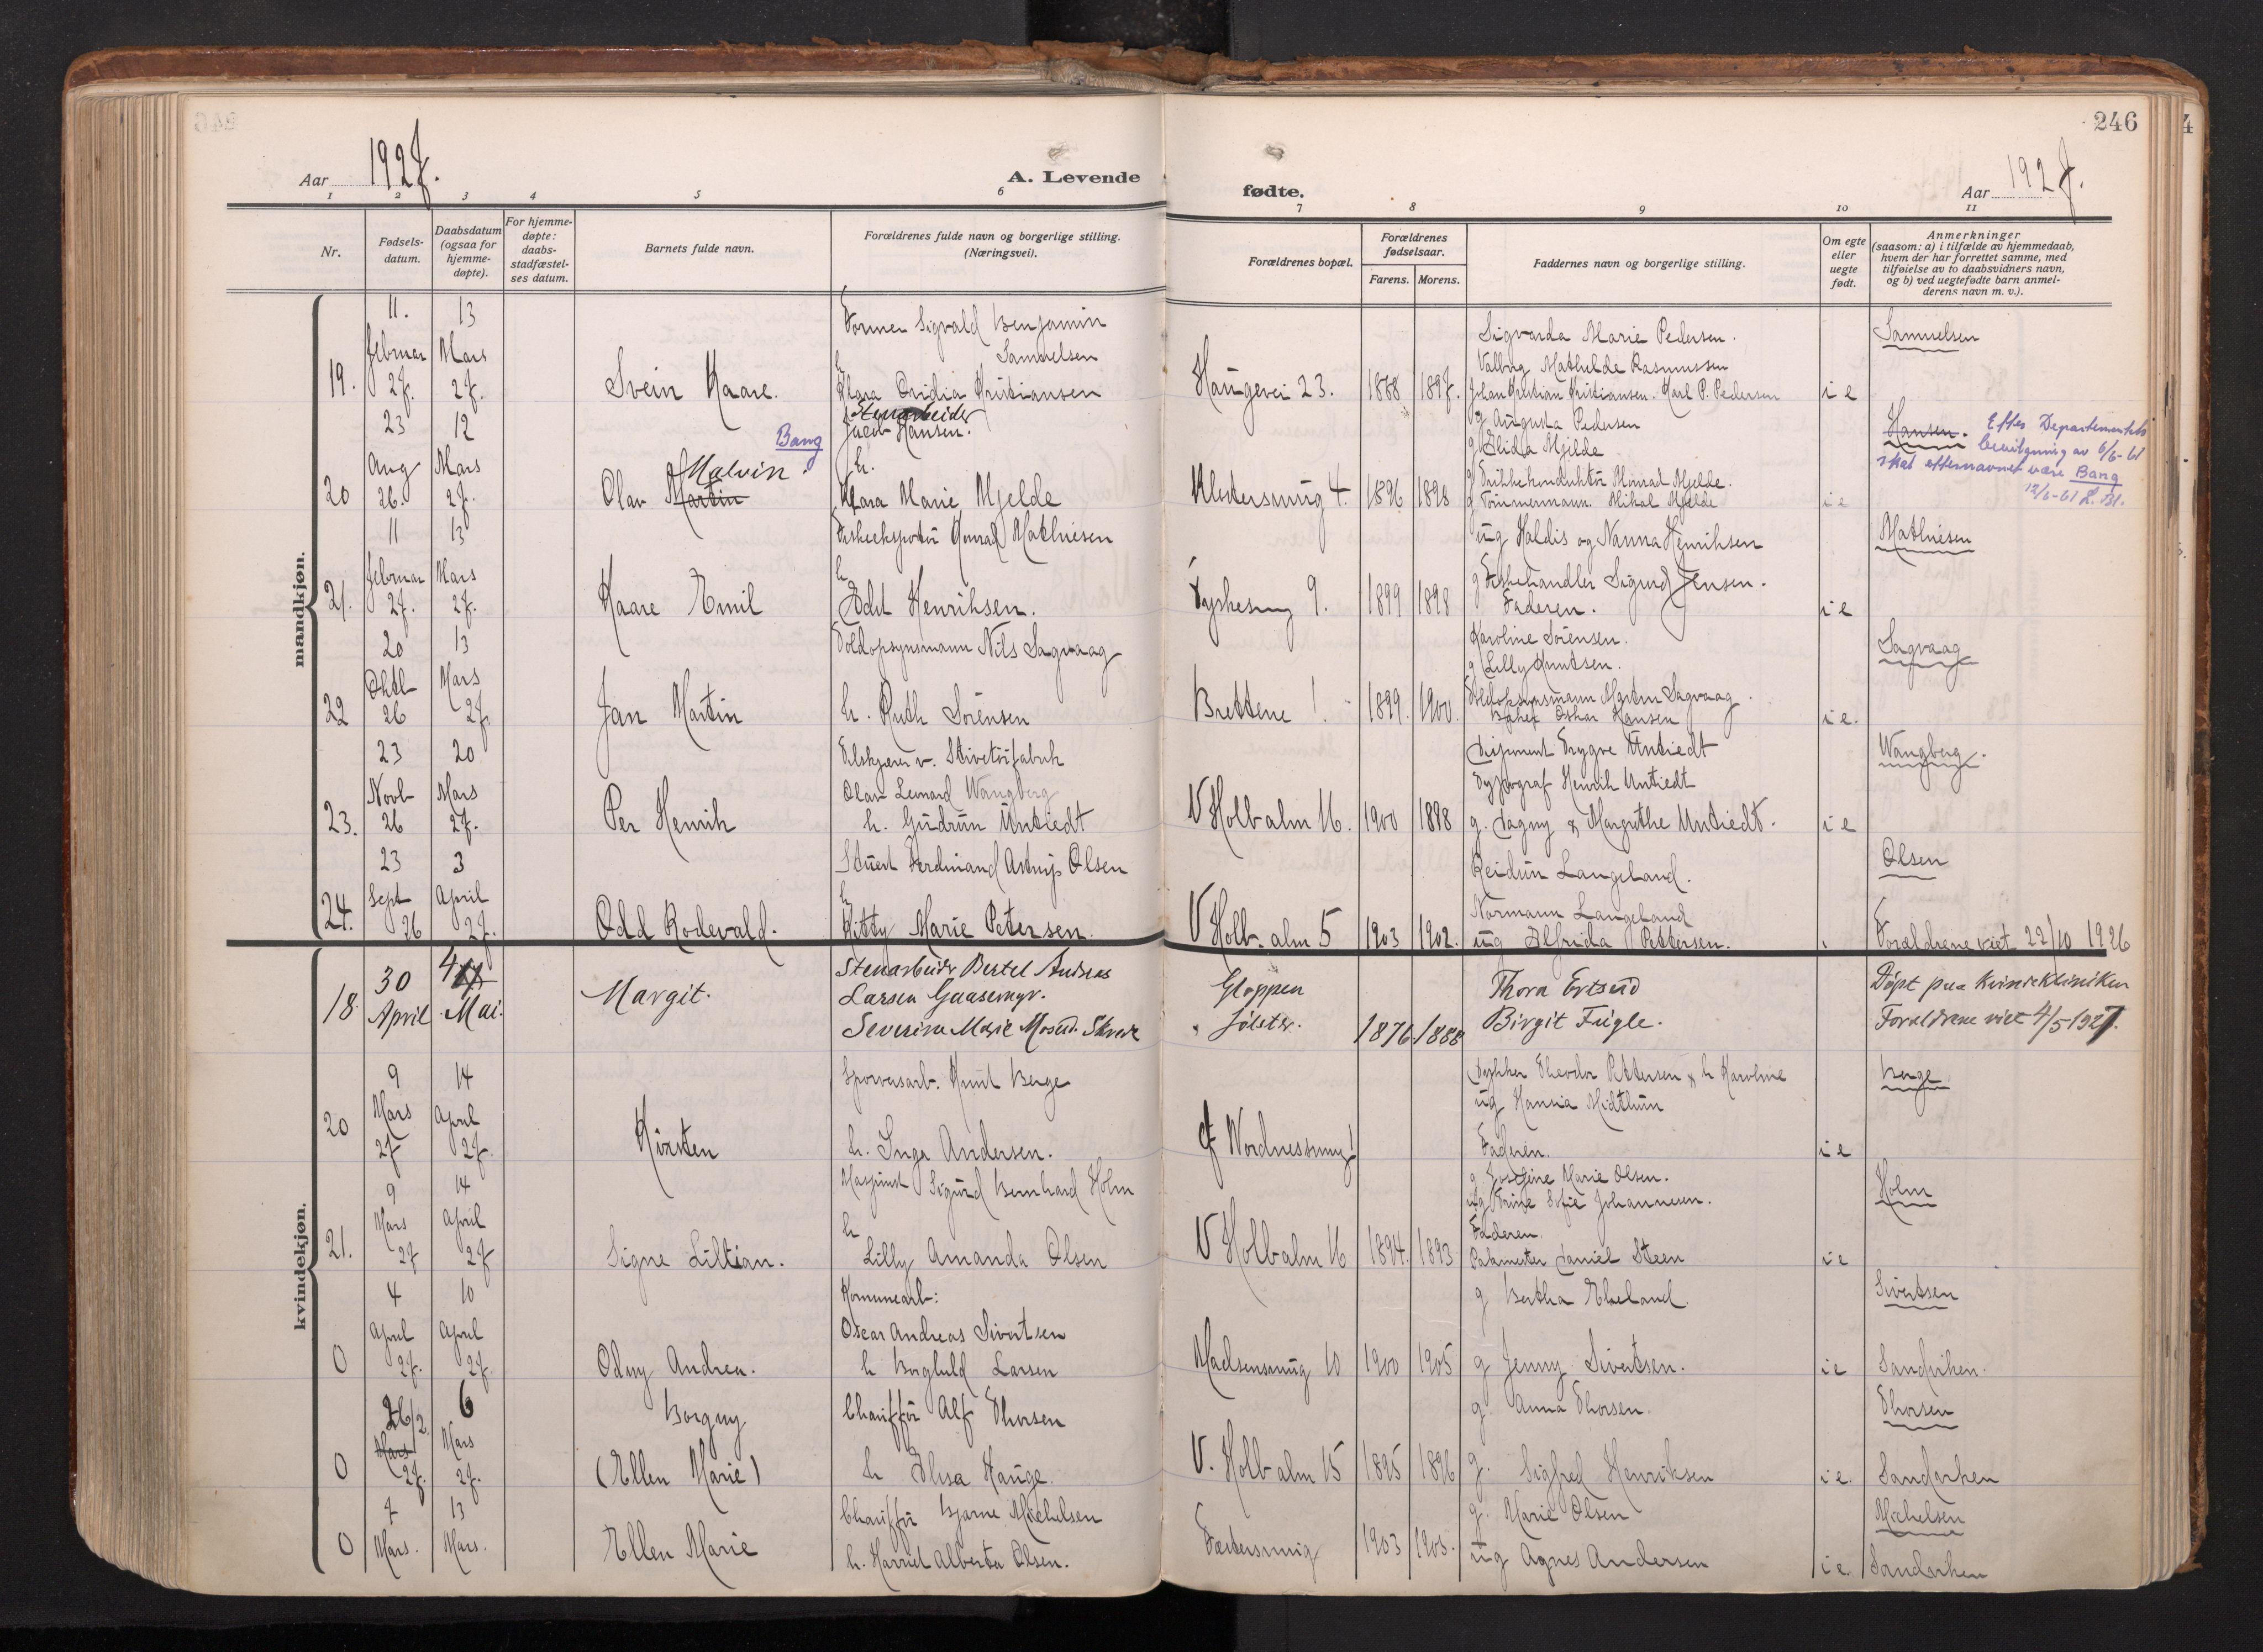 246
Aar 1927.
A. Levende
fødte.
Aar 1927.
1 2 3 4 5 6 7 8 9 10 11
Nr.
Fødsels-
datum.
Daabsdatum
(ogsaa for
hjemme-
døpte).
For hjemme-
døpte:
daabs-
stadfæstel-
ses datum.
Barnets fulde navn.
Forældrenes fulde navn og borgerlige stilling.
(Næringsvei).
Forældrenes bopæl.
Forældrenes
fødselsaar.
Farens. Morens.
Faddernes navn og borgerlige stilling.
Om egte
eller
uegte
født.
Anmerkninger
(saasom: a) i tilfælde av hjemmedaab,
hvem der har forrettet samme, med
tilføielse av to daabsvidners navn,
og b) ved uegtefødte barn anmel-
derens navn m. v.).
mandkjøn.
19.
11.
Februar
27.
13
Mars
27.
Svein Kaare.
Former Sigvald Benjamin
Samuelsen
h
Klara Ovidia Kristiansen
Haugevei 23.
1888 1897.
Sigvarda Marie Pedersen.
Valborg Mathilde Rasmussen
Johan Kristian Kristiansen. Karl P. Pedersen
i e
Samuelsen
20
23
Aug
26.
12
Mars
27.
Bang
Malvin
Olav Martin
Stenarbeider
Jacob Hansen.
h.
Klara Marie Mjelde
Klostersmug 4.
1896 1898
g Augusta Pedersen
g Mjelde
g Trikkekonduktör Konrad Mjelde.
g Tömmermann. Mikal Mjelde
i e
Hansen. Efter Departementets
bevilgning av 6/6-61
skal efternavnet være Bang
12/6-61
21.
11
Februar
27.
13
Mars
27.
Kaare Emil
Konrad Mathiesen
h
Edit Henriksen.
Tyskesmug 9.
1899 1898
ug Haldis og Nanna Henriksen
g Fiskehandler Sigurd Jensen.
Faderen.
i e
Mathiesen
22
20
Oktb
26
13
Mars
27.
Jan Martin
Toldopsynsmann Nils Sagvaag
h. Ruth Sörensen
Brettene 1.
1899. 1900.
Karoline Sörensen.
g Lilly Knutsen.
Toldopsynsmann Martin Sagvaag.
Oskar Hansen
i e.
Sagvaag
23.
23
Novb
26
20
Mars
27.
Per Henrik
Olav Leonard Wangberg
h. Gudrun Untiedt
V Holbalm 16.
1900 1898
Disponent Trygve Untiedt
Typograf Henrik Untiedt
g. Dagny & Margrethe Untiedt.
i e
Wangberg.
24.
23
Sept
26
3
April
27.
Odd Rodevald.
Stuert Ferdinand Olsen
h
Kitty Marie Petersen.
V Holb. alm 5
1903 1902.
Reidun Langeland.
Normann Langeland
ug Alfrida Pettersen.
Olsen
Forældrene viet 22/10 1926
kvindekjøn.
18.
30
April
4
Mai.
Margit.
Stenarbeider Bertel Andreas
Larsen Gaasemyr.
Severine Marie
Gloppen
" Jølster.
1876. 1888
Thora Ertsud
Birgit Fugle.
Døpt paa kvindeklinikken
Forældrene viet 4/5 1927.
20
9
Mars
27
14
April
27.
Kirsten
Sporveisarb. Knut Berge
h. Inga Andersen.
Nordnessmug
Theodor Pettersen & h Karoline
ug Hansia Midthun
Faderen.
i e
Berge
21.
9
Mars
27
14
April
27
Signe Lillian.
Maskinist Sigurd Bernhard Holm
h
Lilly Amanda Olsen
V Holbalm 16
1894. 1893
g. Josefine Marie Olsen.
ug Trine Sofie Johannesen.
Faderen.
Daniel Steen
i e
Holm
0
4
April
27.
10
April
27.
Odny Andrea.
Komunearb:
Oscar Andreas Sivertsen
h Borghild Larsen
Madsensmug 10
1900 1905
g Bertha Ekeland.
g Jenny Sivertsen.
i e
Sivertsen
Sandviken.
0
26/2
Mars
27.
6
Mars
27.
Borgny
(Ellen Marie)
Chaufför Alf Thorsen
h Elisa Hauge.
V. Holb alm 15
1895 1896
g. Anna Thorsen.
g. Sigfred Henriksen
i e.
Thorsen
Sandviken
0
7
Mars.
13
Mars.
Ellen Marie
Chaufför Bjarne Michelsen
h. Harriet Alberta Olsen.
1903 1905.
g. Marie Olsen
ug Agnes Andersen
i e
Michelsen
Sandviken